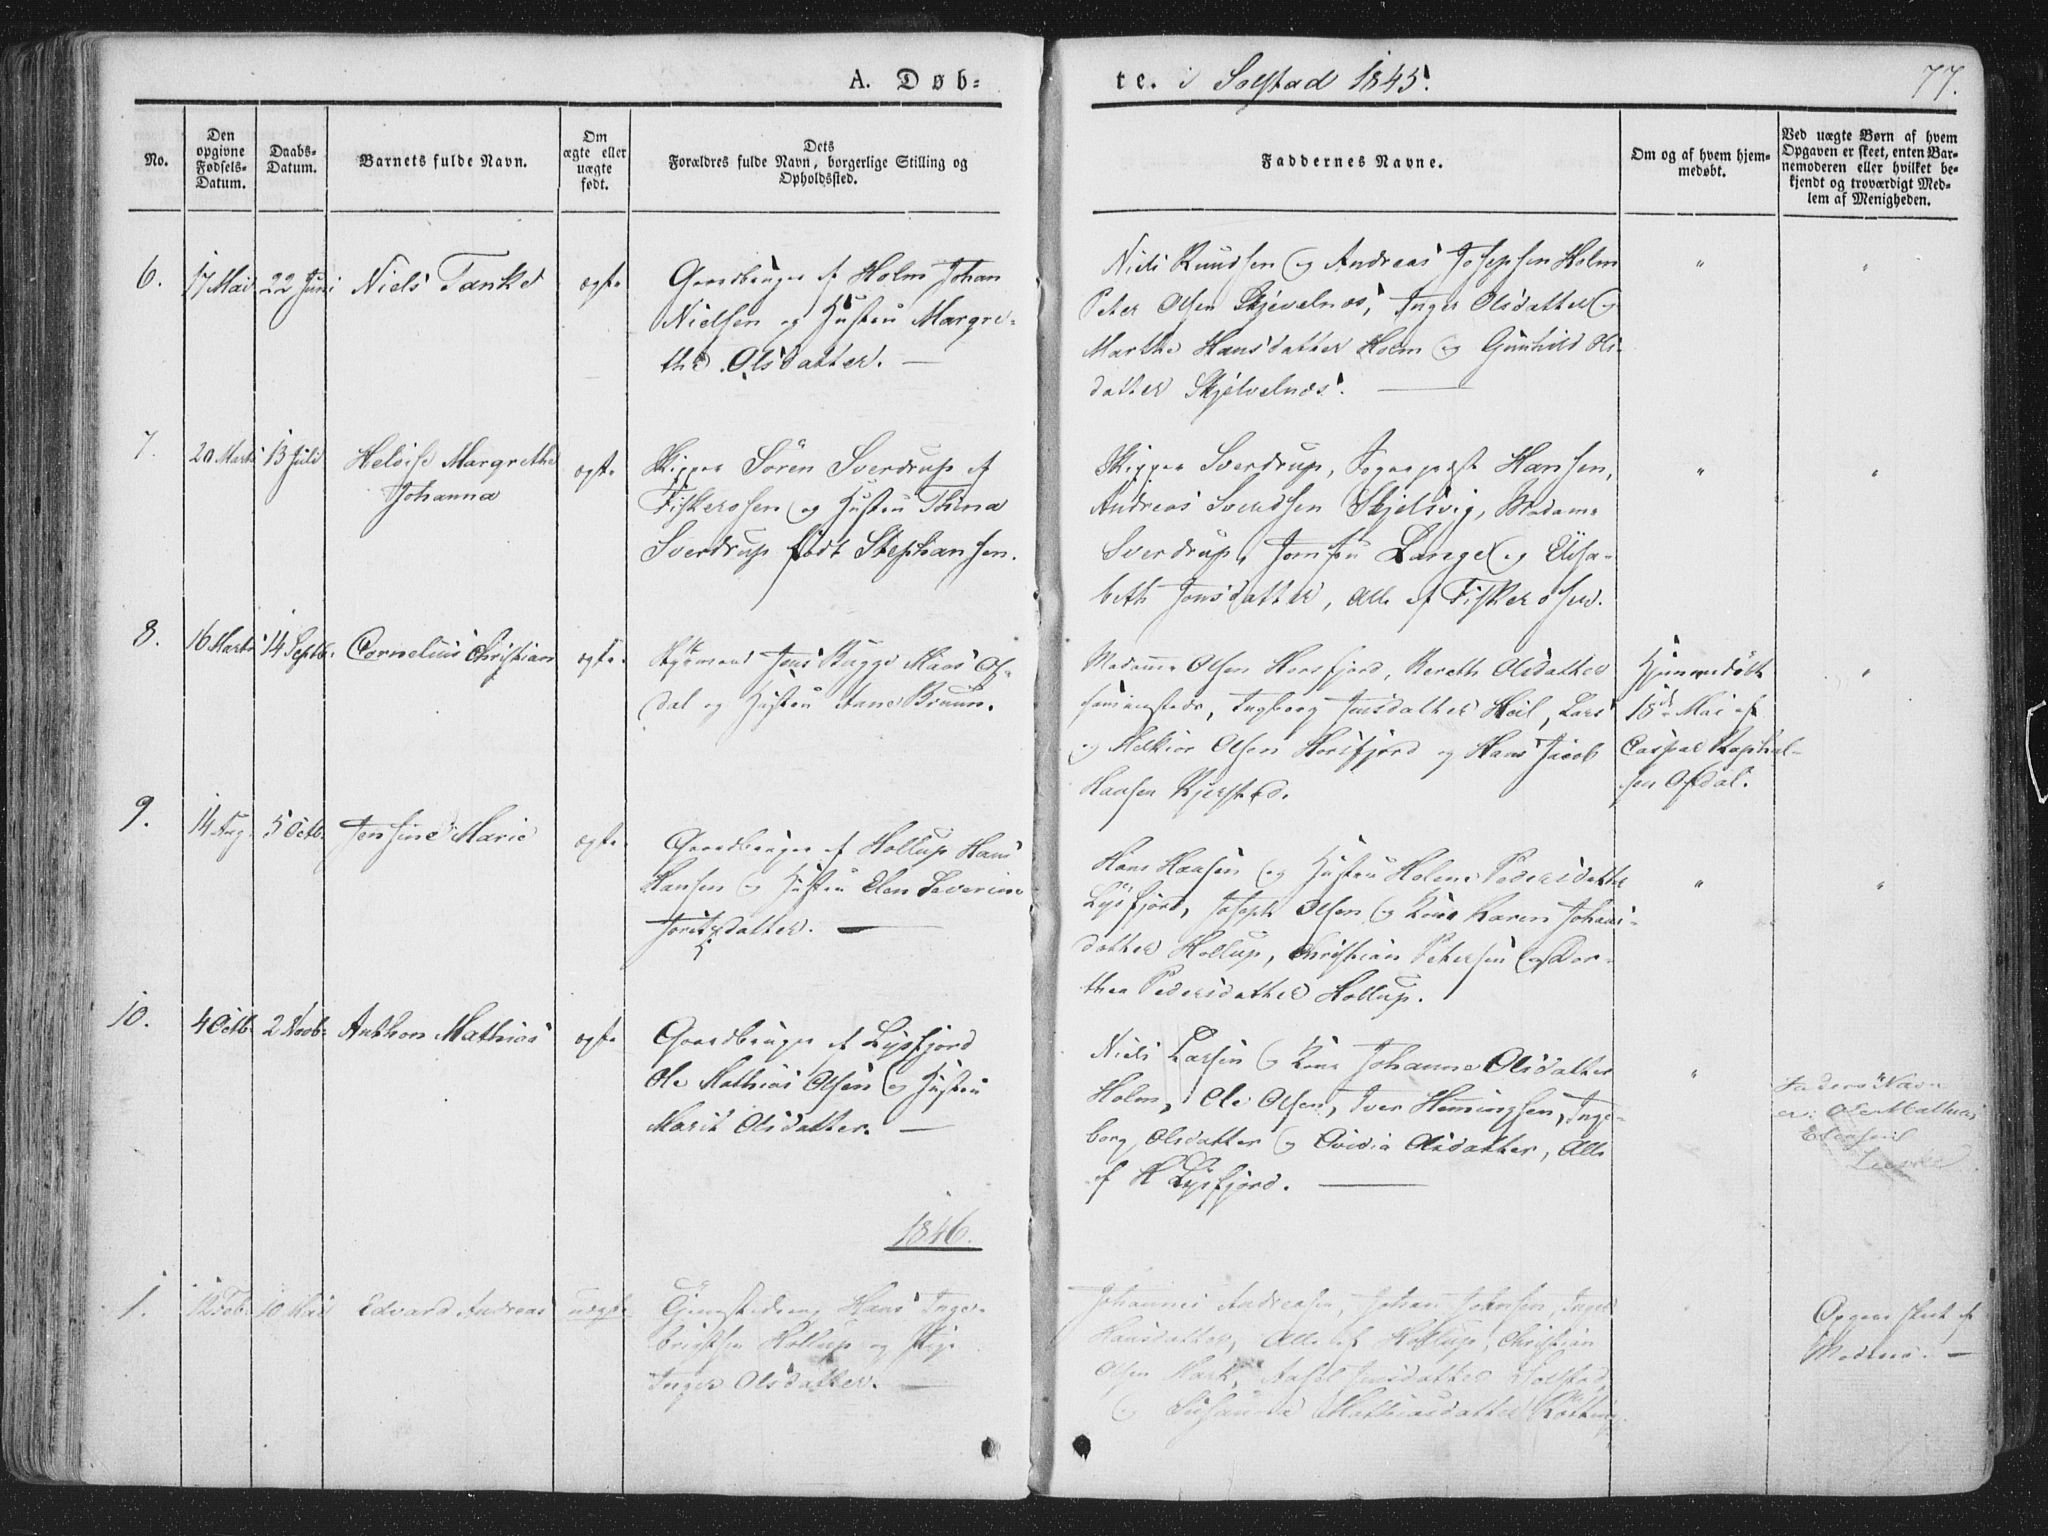 A. Døb-
te. i Solstad 1845.
77.
No.
Den opgivne Fødsels-Datum.
Daabs-Datum.
Barnets fulde Navn.
Om ægte eller uægte født.
Dets Forældres fulde Navn, borgerlige Stilling og Opholdssted.
Faddernes Navne.
Om og af hvem hjem-medøbt.
Ved uægte Børn af hvem Opgaven er skeet, enten Bar-nemoderen eller hvilket be-kjendt og troværdigt Med-lem af Menigheden.
6. 17 Mai 22 Juni Niels Tanke ægte
Gaardbruger af Holm Johan
Nielsen og Hustru Margre-
the Olsdatter. —
Niels Knudsen og Andreas Josephsen Holm
Peter Olsen Skjevelnæs, Inger Olsdatter og
Marthe Hansdatter Holm og Gunhild Ols-
datter Skjelvelnæs. —
" "
7. 20 Marts 13 Juli Heloise Margrethe
Johanna
ægte
Skipper Sören Sverdrup af
Fiskerosen og Hustru Thina
Sverdrup født Stephansen.
Skipper Sverdrup, Sognepræst Hansen,
Andreas Svendsen Skjelsvig, Madame
Sverdrup, Jomfru Lange og Elisa-
beth Jonsdatter, Alle af Fiskerosen.
" "
8. 16 Marts 14 Septb. Cornelius Christian ægte.
Styrmand Jens Bugge Maas Of-
dal og Hustru Anne Bruun.
Madame Olsen Horsfjord, Bereth Olsdatter
sammesteds, Ingborg Jensdatter Heil, Lars
og Melkior Olsen Horsfjord og Hans Jacob
Hansen Kjerstad.
Hjemmedøbt
18de Mai af
Caspar Raphael-
sen Ofdal.
"
9. 14 Aug. 5 Octb. Jensine Marie ægte.
Gaardbruger af Hollup Hans
Hansen og Hustru Elen Severine
datter. —
Hans Hansen og Hustru Helene Pedersdatter
Lysfjord, Joseph Olsen og Kone Karen Johans-
datter Hollup, Christian Petersen og Dor-
thea Pedersdatter Hollup.
" "
10. 4 Octb. 2 Novb. Anthon Mathias ægte
Gaardbruger af Lysfjord
Ole Mathias Olsen og Hustru
Marit Olsdatter. —
Niels Larsen og Kone Johanna Olsdatter
Holm, Ole Olsen, Iver Hemingsen, Inge-
borg Olsdatter og Ovidia Olsdatter, Alle
af Lysfjord. —
" "
Faders Navn
er: Ole Mathias
1846.
1. 12 Feb. 10 Mai Edvard Andreas uægte
Hans Inge-
brigtsen Hollup og Pige
Inger Olsdatter. —
Johannes Andreasen, Johan Johnsen, Inger
Hansdatter, Alle af Hollup, Christian
Olsen Mark, Jensdatter Solstad
og Susanna Mathiasdatter
Opgave skeet af
Moderen. —